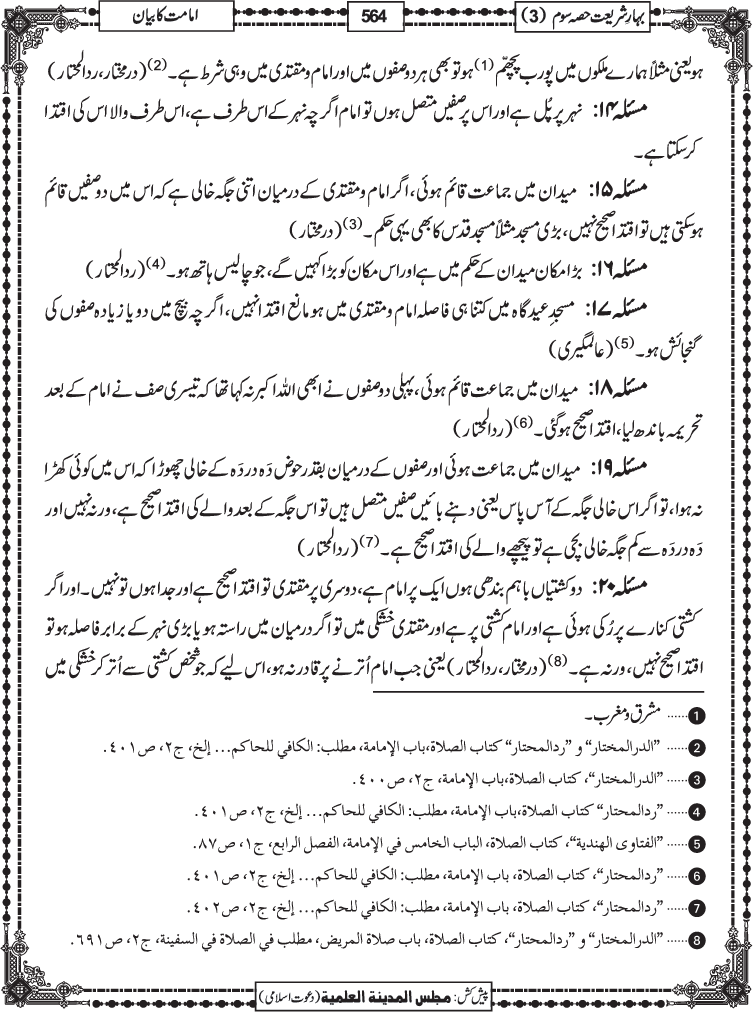 بہارِ شریعت حصہ سوم (3)
564
امامت کا بیان
ہو یعنی مثلاً ہمارے ملکوں میں پورب پچھم (1) ہو تو بھی ہر دو صفوں میں اور امام و مقتدی میں وہی شرط ہے۔ (2) (درمختار، ردالمحتار)
مسئلہ ۱۴: نہر پر پُل ہے اور اس پر صفیں متصل ہوں تو امام اگرچہ نہر کے اس طرف ہے، اس طرف والا اس کی اقتدا
کرسکتا ہے۔
مسئلہ ۱۵: میدان میں جماعت قائم ہوئی، اگر امام و مقتدی کے درمیان اتنی جگہ خالی ہے کہ اس میں دو صفیں قائم
ہوسکتی ہیں تو اقتدا صحیح نہیں، بڑی مسجد مثلاً مسجد قدس کا بھی یہی حکم۔ (3) (درمختار)
مسئلہ ۱۶: بڑا مکان میدان کے حکم میں ہے اور اس مکان کو بڑا کہیں گے، جو چالیس ہاتھ ہو۔ (4) (ردالمحتار)
مسئلہ ۱۷: مسجدِ عیدگاہ میں کتنا ہی فاصلہ امام و مقتدی میں ہو مانع اقتدا نہیں، اگرچہ بیچ میں دو یا زیادہ صفوں کی
گنجائش ہو۔ (5) (عالمگیری)
مسئلہ ۱۸: میدان میں جماعت قائم ہوئی، پہلی دو صفوں نے ابھی اللہ اکبر نہ کہا تھا کہ تیسری صف نے امام کے بعد
تحریمہ باندھ لیا، اقتدا صحیح ہوگئی۔ (6) (ردالمحتار)
مسئلہ ۱۹: میدان میں جماعت ہوئی اور صفوں کے درمیان بقدر حوض دَہ در دَہ کے خالی چھوڑا کہ اس میں کوئی کھڑا
نہ ہوا، تو اگر اس خالی جگہ کے آس پاس یعنی دہنے بائیں صفیں متصل ہیں تو اس جگہ کے بعد والے کی اقتدا صحیح ہے، ورنہ نہیں اور
دَہ در دَہ سے کم جگہ خالی بچی ہے تو پیچھے والے کی اقتدا صحیح ہے۔ (7) (ردالمحتار)
مسئلہ ۲۰: دو کشتیاں باہم بندھی ہوں ایک پر امام ہے، دوسری پر مقتدی تو اقتدا صحیح ہے اور جدا ہوں تو نہیں۔ اور اگر
کشتی کنارے پر رُکی ہوئی ہے اور امام کشتی پر ہے اور مقتدی خشکی میں تو اگر درمیان میں راستہ ہو یا بڑی نہر کے برابر فاصلہ ہو تو
اقتدا صحیح نہیں، ورنہ ہے۔ (8) (درمختار، ردالمحتار) یعنی جب امام اُترنے پر قادر نہ ہو، اس لیے کہ جو شخص کشتی سے اُتر کر خشکی میں
1 ...... مشرق و مغرب۔
2 ...... ”الدرالمختار“ و ”ردالمحتار“ کتاب الصلاة، باب الإمامة، مطلب: الکافي للحاکم... إلخ، ج۲، ص۴۰۱.
3 ...... ”الدرالمختار“، کتاب الصلاة، باب الإمامة، ج۲، ص۴۰۰.
4 ...... ”ردالمحتار“ کتاب الصلاة، باب الإمامة، مطلب: الکافي للحاکم... إلخ، ج۲، ص۴۰۱.
5 ...... ”الفتاوی الهندية“، کتاب الصلاة، الباب الخامس في الإمامة، الفصل الرابع، ج۱، ص۸۷.
6 ...... ”ردالمحتار“، کتاب الصلاة، باب الإمامة، مطلب: الکافي للحاکم... إلخ، ج۲، ص۴۰۱.
7 ...... ”ردالمحتار“، کتاب الصلاة، باب الإمامة، مطلب: الکافي للحاکم... إلخ، ج۲، ص۴۰۲.
8 ...... ”الدرالمختار“ و ”ردالمحتار“، کتاب الصلاة، باب صلاة المریض، مطلب في الصلاة في السفینة، ج۲، ص۶۹۱.
پیش کش: مجلس المدینة العلمیة (دعوتِ اسلامی)